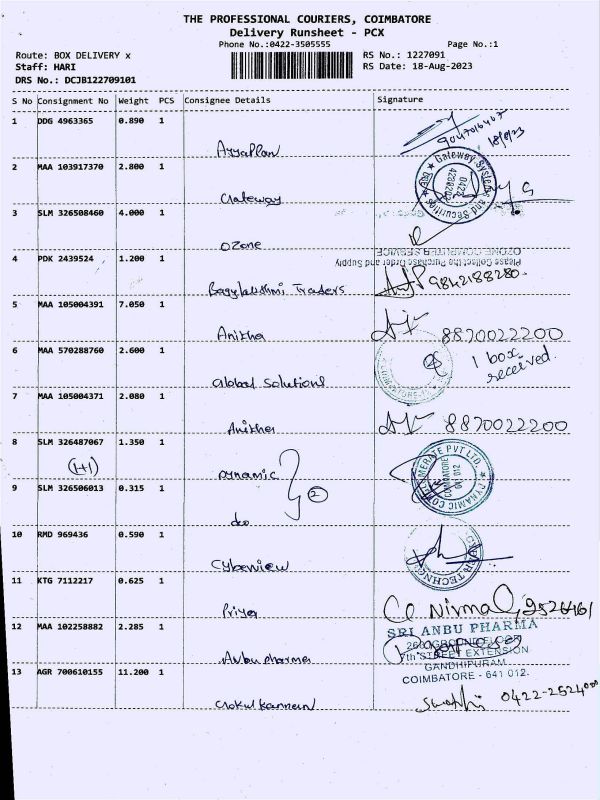 THE PROFESSIONAL COURIERS, COIMBATORE
Delivery Runsheet - PCX
Phone No.:0422-3505555
Page No.:1
Route: BOX DELIVERY x
RS No.: 1227091
Staff: HARI
RS Date: 18-Aug-2023
DRS No.: DCJB122709101
S No Consignment No Weight PCS Consignee Details Signature
1 DDG 4963365 0.890 1
18/8/23
2 MAA 103917370 2.800 1
Gateway
3 SLM 326508460 4.000 1
Ozone
OZONE COMPUTER SERVICE
Please Collect the Purchase Order and Supply
4 PDK 2439524 1.200 1
Traders
9842188280
5 MAA 105004391 7.050 1
Anitha
8870022200
6 MAA 570288760 2.600 1
Global Solutions
1 box received.
7 MAA 105004371 2.080 1
Anitha
8870022200
8 SLM 326487067 1.350 1
(1+1)
Dynamic
2
9 SLM 326506013 0.315 1
do
10 RMD 969436 0.590 1
Cyberview
11 KTG 7112217 0.625 1
Priya
Nirmal
12 MAA 102258882 2.285 1
Anbu pharma
SRI ANBU PHARMA
7th STREET EXTENSION
GANDHIPURAM
COIMBATORE - 641 012.
13 AGR 700610155 11.200 1
Gokul kannan
0422-2524000